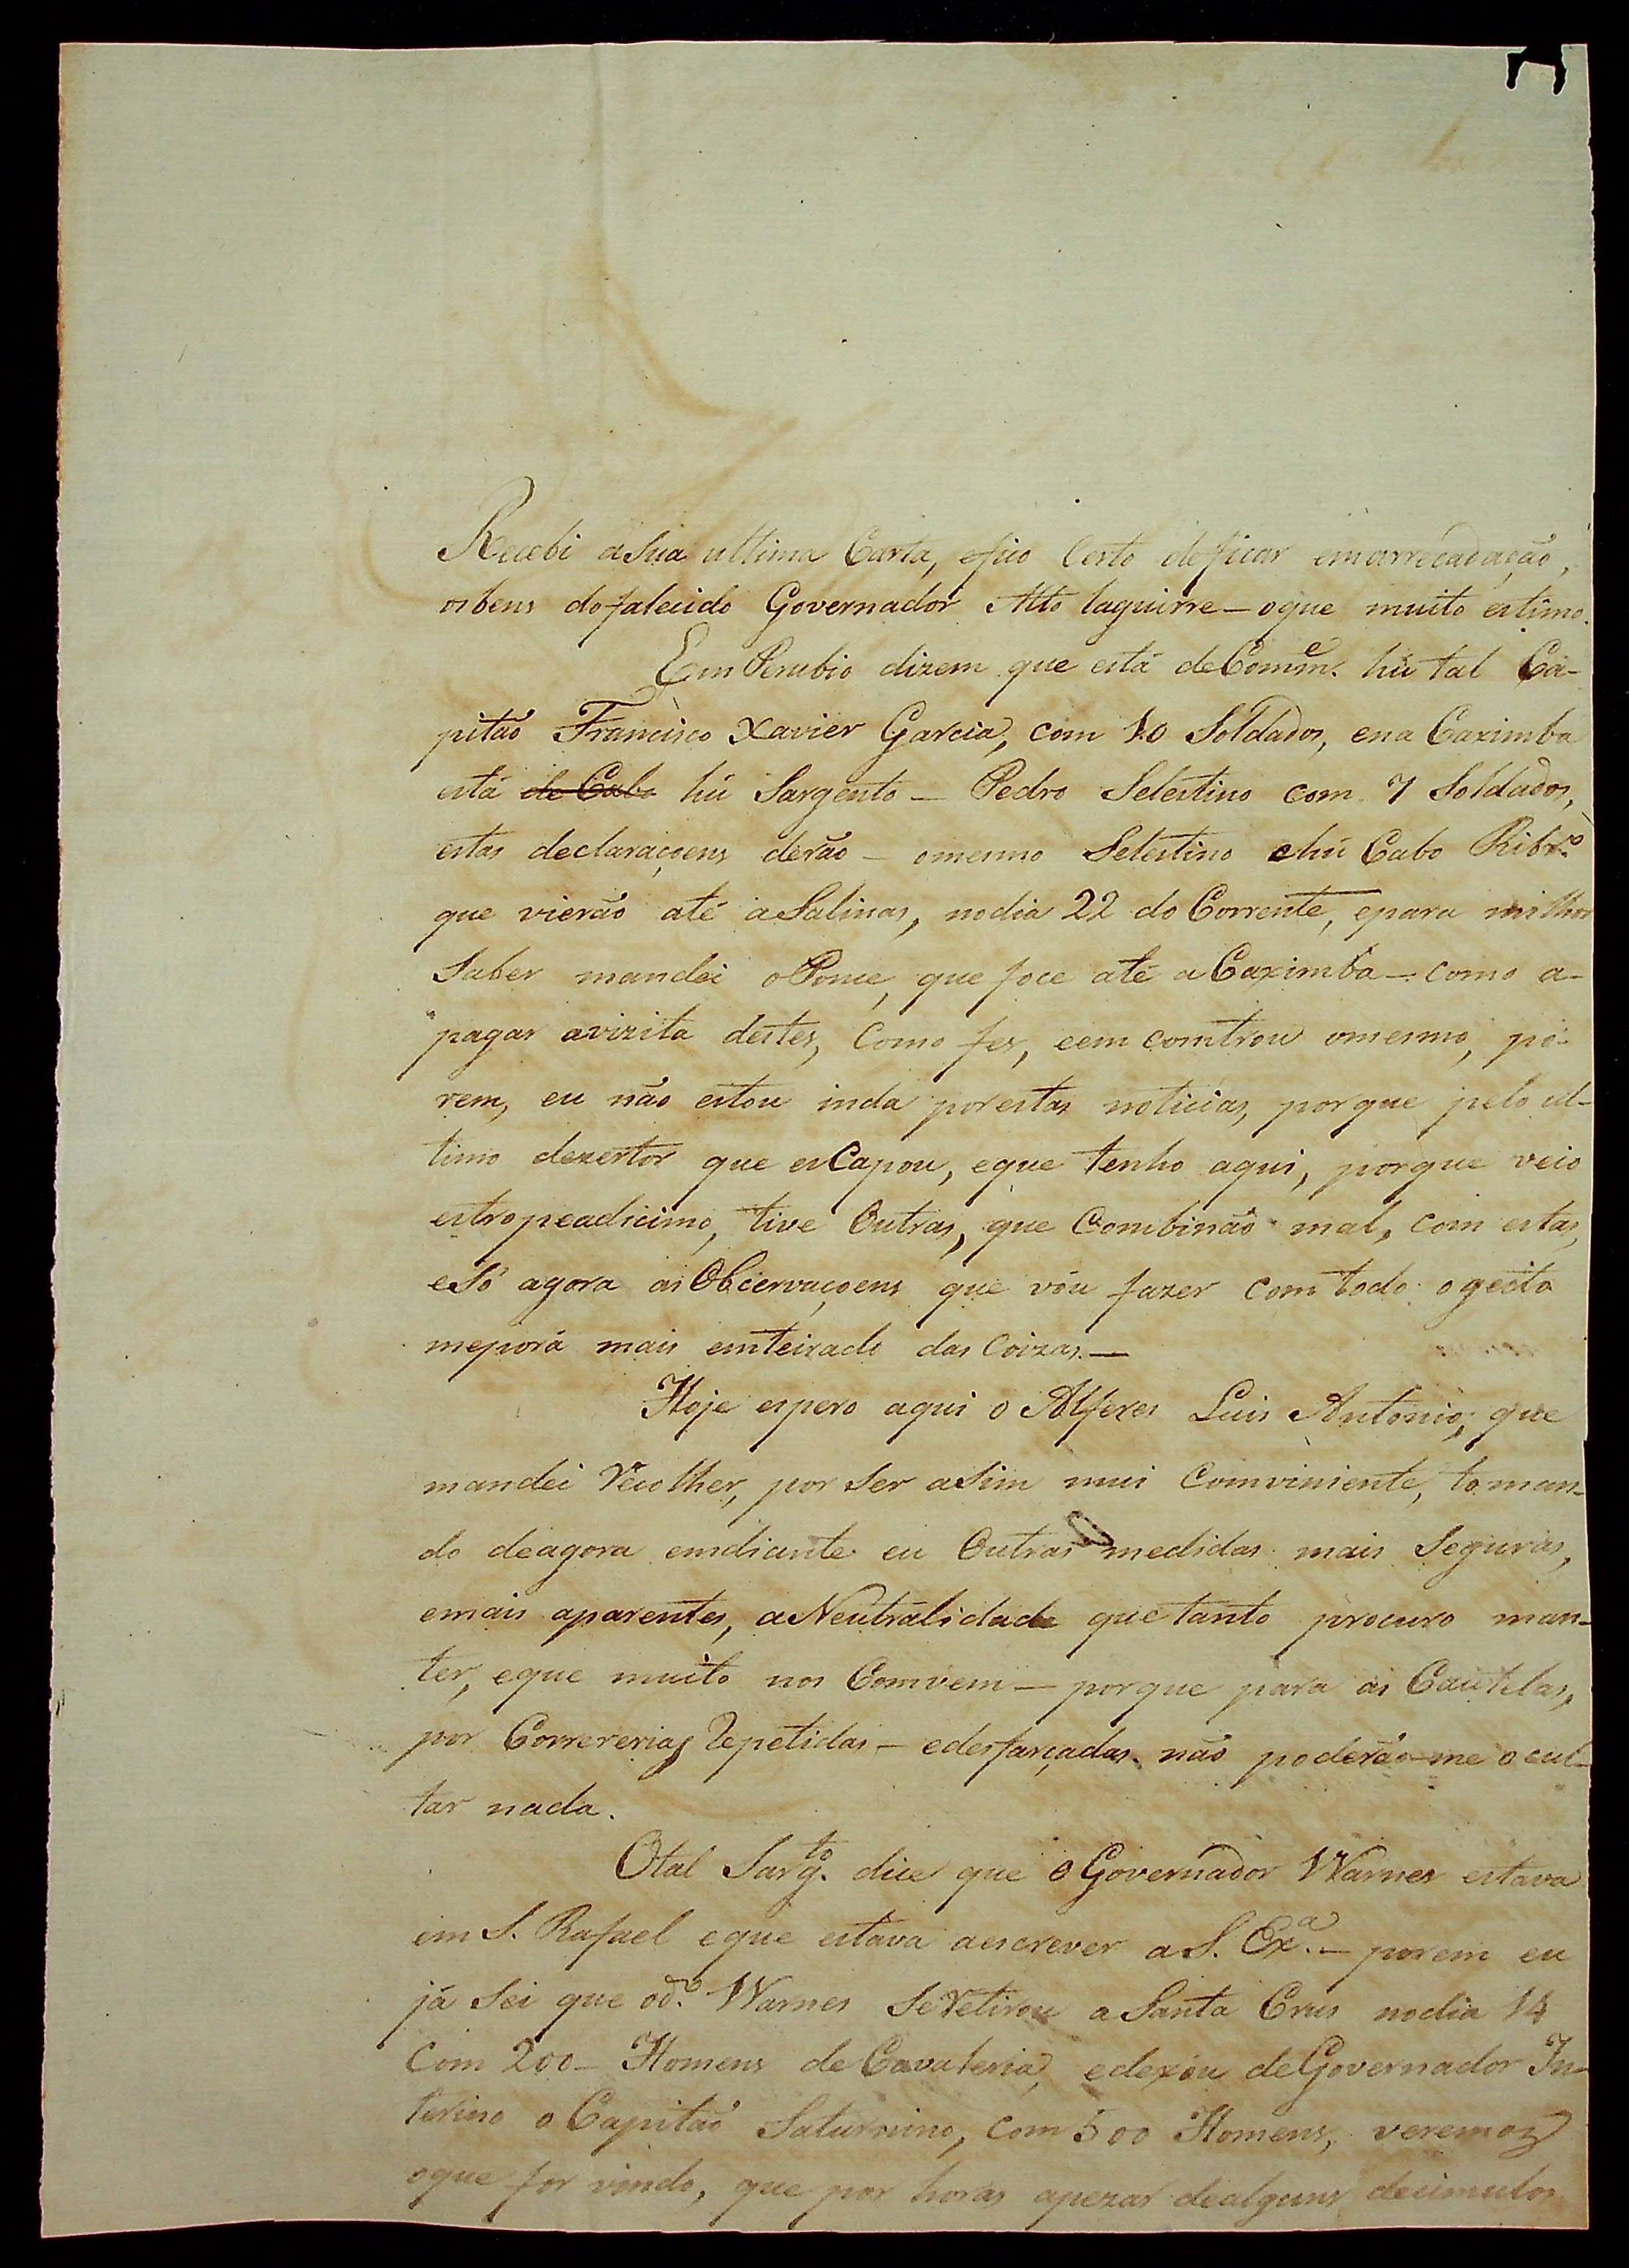 Recebi a Sua ultima Carta, efico Certo deficar emarrecadação,
osbens dofalecido Governador Alto laguirre — oque muito estimo.
Em Perubio dizem que está deComm.e hũ tal Ca-
pitão Francisco Xavier Garcia, com 10 Soldados, ena Caximba
está de Cabo hũ Sargento — Pedro Selestino com 7 Soldados,
estas declaraçoens derão — omesmo Selestino ehũ Cabo Ribr.o
que vierão até aSalinas, nodia 22 do Corrente, epara milhor
Saber mandei oPonce, que foce até a Caximba — como a-
pagar avizita destes, Como fes, eem comtrou omesmo, po-
rem, eu não estou inda porestas noticias, porque pelo ul-
timo dezertor que esCapou, eque tenho aqui, porque veio
estropeadicimo, tive Outras, que Combinão mal, com estas,
eSó agora as Obcervaçoens que vou fazer com todo ogeito
meporá mais emteirado das Coizas. —
Hoje espero aqui o Alferes Luis Antonio, que
mandei recolher, por Ser aSim mui Comviniente, toman-
do deagora emdiante eu Outras medidas mais Seguras,
emais aparentes, aNeutralidade quetanto procuro man-
ter, eque muito nos Comvem — porque para as Cautelas,
por Correrias repetidas — edesfarçadas não poderão-me ocul-
tar nada.
Otal Sarg.to dice que oGovernador Warnes estava
em S. Rafael eque estava aescrever a S. Ex.a — porem eu
já Sei que od.o Warnes Seretirou a Santa Crus nodia 14
Com 200 — Homens de Cavaleria, edexou deGovernador In-
terino o Capitão Saturnino, com 500 Homens, veremos
oque for vindo, que por horas apezar dealguns decimulos